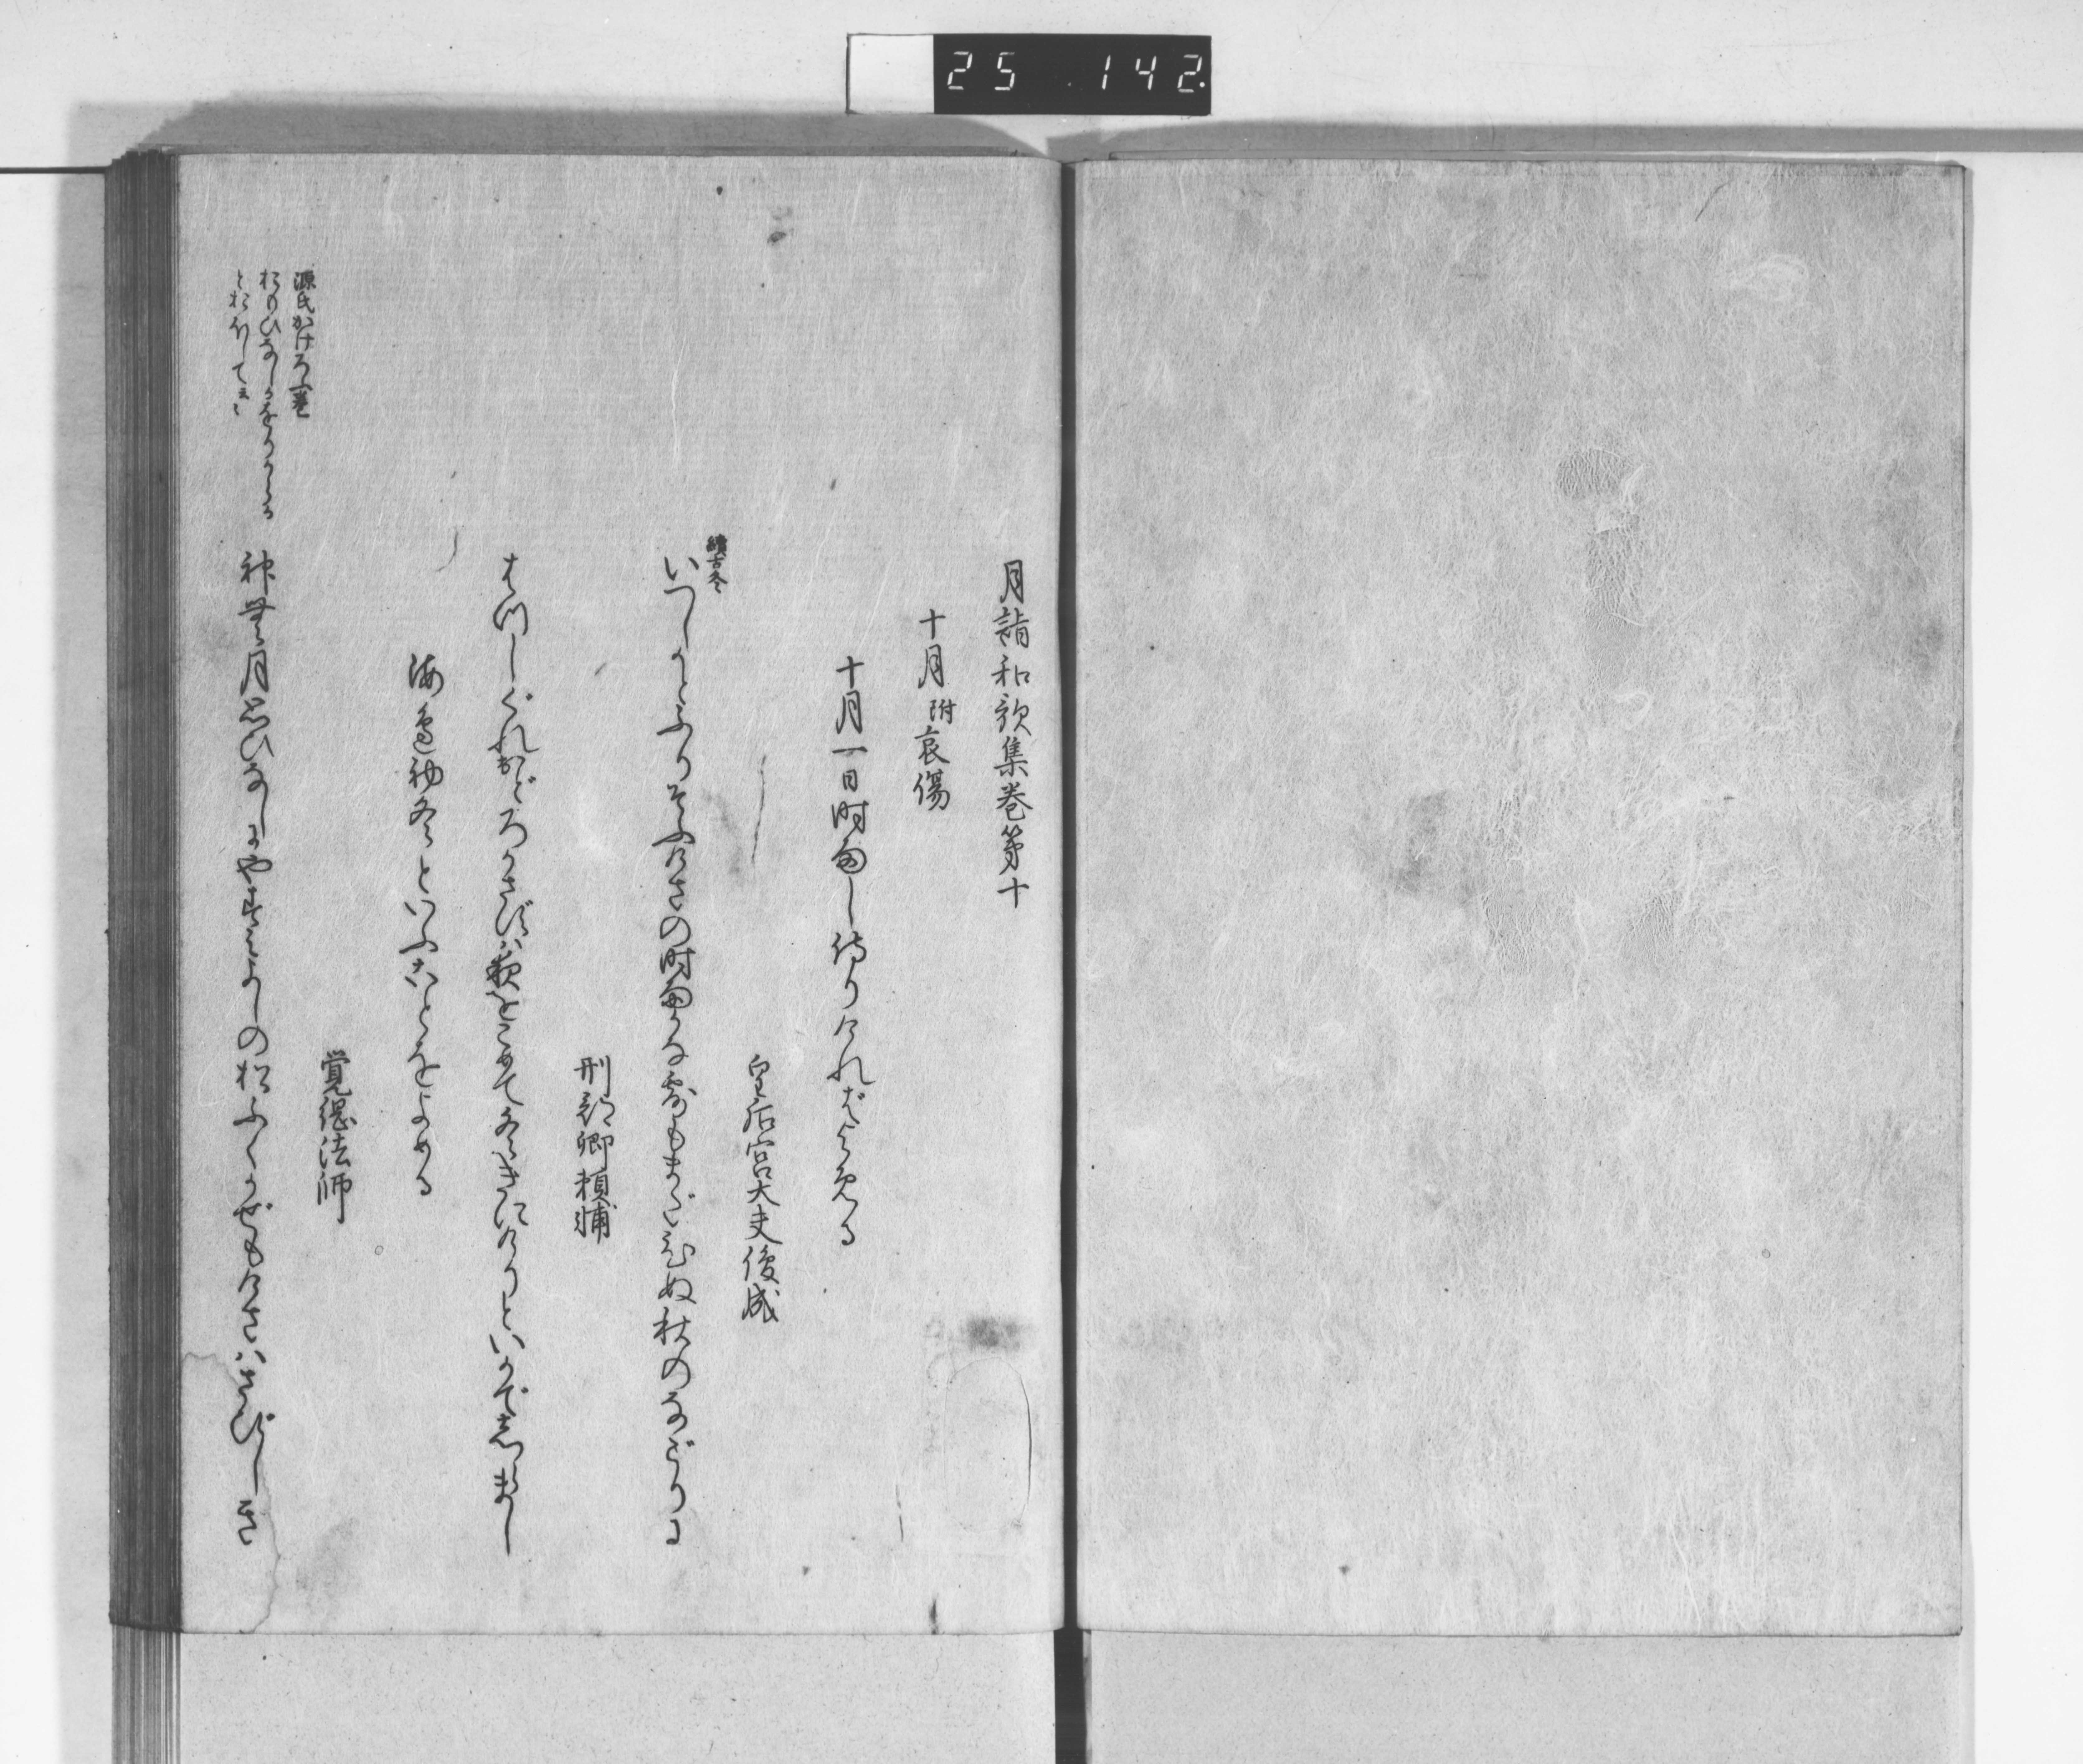 25 142
月詣和歌集巻第十
十月 附哀傷
十月一日時雨し侍りければよめる
皇后宮大夫俊成
續古今
いつしかとふりそふけさの時雨かな露もまだひぬ秋のなごりに
刑部卿頼輔
はつしぐれおどろかさずは夜をこめて冬きにけりといかでしらまし
海邊初冬といふことをよめる
覚綱法師
源氏かけろふ巻
とおほしてきゝ
神無月思ひなしにやすみよしの松ふくかぜもけさはさびしき